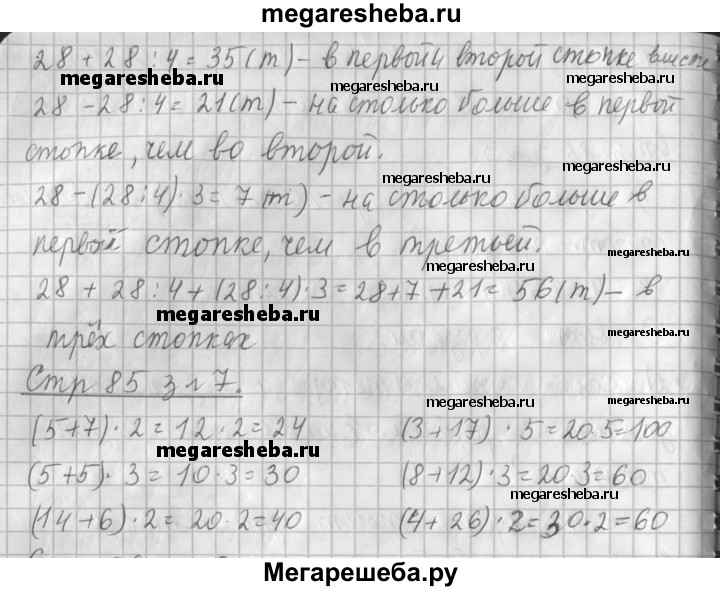 megaresheba.ru
28 + 28 : 4 = 35 (т) – в первой и второй стопке вместе
megaresheba.ru megaresheba.ru
28 – 28 : 4 = 21 (т) – на столько больше в первой
стопке, чем во второй.
megaresheba.ru megaresheba.ru
28 – (28 : 4) · 3 = 7 (т) – на столько больше в
первой стопке, чем в третьей.
megaresheba.ru
28 + 28 : 4 + (28 : 4) · 3 = 28 + 7 + 21 = 56 (т) – в
megaresheba.ru
трёх стопках
Стр 85 з л 7.
megaresheba.ru
(5+7) · 2 = 12 · 2 = 24 (3+17) · 5 = 20 · 5 = 100
megaresheba.ru megaresheba.ru
(5+5) · 3 = 10 · 3 = 30 (8+12) · 3 = 20 · 3 = 60
megaresheba.ru
(14+6) · 2 = 20 · 2 = 40 (4+26) · 2 = 30 · 2 = 60
Мегарешеба.ру